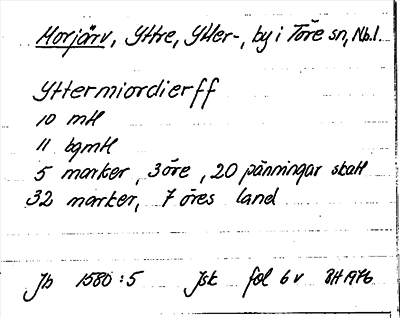 Morjärv, Yttre, Ytter-, by i Töre sn, Nb.l.
Yttermiordierff
10 mtl
11 bgmtl
5 marker, 3 öre, 20 pänningar skatt
32 marker, 7 öres land
Jb 1580:5 Jsk fol 6 v BH 1976